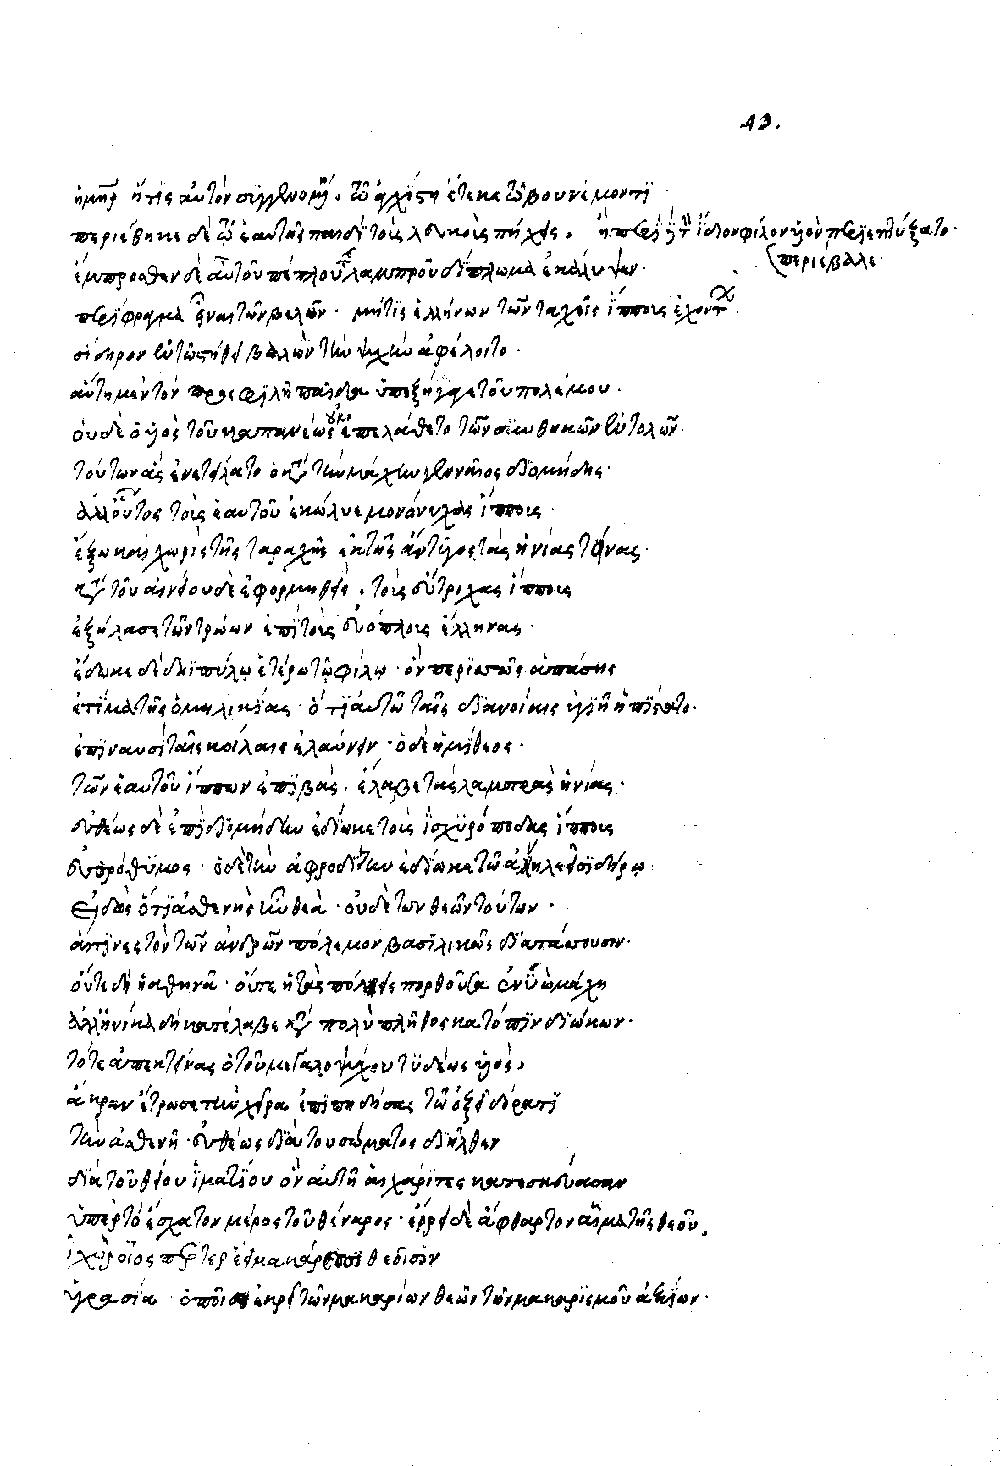 13.
ἡ μηρ ἥτις αὐτὸν συγγενομένη τῷ ἀγχίση ἔτεκε τῷ βουνέμοντι
περιέθηκε δὲ τῷ ἑαυτῆς παιδὶ τοὺς λευκοὺς πήχεις. ἢ περὶ τὸν ἴδιον φίλον υἱὸν περιεπτύξατο.
περιέβαλε
ἔμπροσθεν δὲ αὐτοῦ πέπλου λαμπροῦ δίπλωμα ἐκάλυψεν.
περίφραγμα εἶναι τῶν βελῶν. μήτις ἑλλήνων τῶν ταχεῖς ἵππους ἐχόντων
σίδηρον ἐν τῷ στήθει βαλὼν τὴν ψυχὴν ἀφέλοιτο.
αὕτη μὲν τὸν προσφιλῆ παῖδα ὑπεξήγαγε τοῦ πολέμου.
οὐδὲ ὁ υἱὸς τοῦ καπανέως ἐπελάθετο τῶν συνθηκῶν ἐντολῶν.
τούτων ἃς ἐνετείλατο ὁ κατὰ τὴν μάχην γενναῖος διομήδης.
ἀλλ' οὗτος τοὺς ἑαυτοῦ ἐκώλυε μονώνυχας ἵππους.
ἔξω καὶ χωρὶς τῆς ταραχῆς ἐκ τῆς ἄντυγος τὰς ἡνίας τείνας.
κατὰ τοῦ αἰνείου δὲ ἐφορμηθεὶς. τοὺς εὔτριχας ἵππους
ἐξήλασε τῶν τρώων ἐπὶ τοὺς εὐόπλους ἕλληνας.
ἔδωκε δὲ δηιπύλῳ ἑτέρῳ τῷ φίλῳ. ὃν περὶ πάσης
ἐτίμα τῆς ὁμηλικίας. ὅτι αὐτῷ ταῖς διανοίαις
ἐπὶ ναυσὶ ταῖς κοίλαις ἐλαύνειν. ὁ δὲ ἡμίθεος.
τῶν ἑαυτοῦ ἵππων ἐπιβὰς. ἔλαβε τὰς λαμπρὰς ἡνίας.
εὐθέως δὲ ἐπὶ διομήδην ἐδίωκε τοὺς ἰσχυρόποδας ἵππους
εὐπρόθυμος. ὁ δὲ τὴν ἀφροδίτην ἐδίωκε τῷ ἀπηλεεῖ σιδήρῳ
εἰδὼς ὅτι ἀσθενὴς ἦν θεά. οὐδὲ τῶν θεῶν τούτων.
αἵτινες τὸν τῶν ἀνδρῶν πόλεμον βασιλικῶς διατάττουσιν.
οὔτε δὴ ἡ ἀθηνᾶ. οὔτε ἡ τὰς πόλεις πορθοῦσα ἐνυὼ μάχη
ἀλλ' ἡνίκα δὴ κατέλαβε κατὰ πολὺ πλῆθος κατόπιν διώκων.
τότε ἀπεκτείνας ὁ τοῦ μεγαλοψύχου τυδέως υἱὸς.
ἄκραν ἔτρωσε τὴν χεῖρα ἐπιπηδήσας τῷ ὀξεῖ δόρατι
τὴν ἀσθενῆ. εὐθέως διὰ τοῦ σώματος διῆλθεν
διὰ τοῦ θείου ἱματίου ὃν αὐτῇ αἱ χάριτες κατεσκεύασαν
ὑπὲρ τὸ ἔσχατον μέρος τοῦ θέναρος. ἔρρει δὲ ἄφθαρτον αἷμα τῆς θεοῦ.
ἰχὼρ οἷος πέρ τε ῥέει μακάρεσσι θεοῖσιν
ὑγρασία. ὁποία ἐκρεῖ τῶν μακαρίων θεῶν τῶν μακαρισμοῦ ἀξίων.